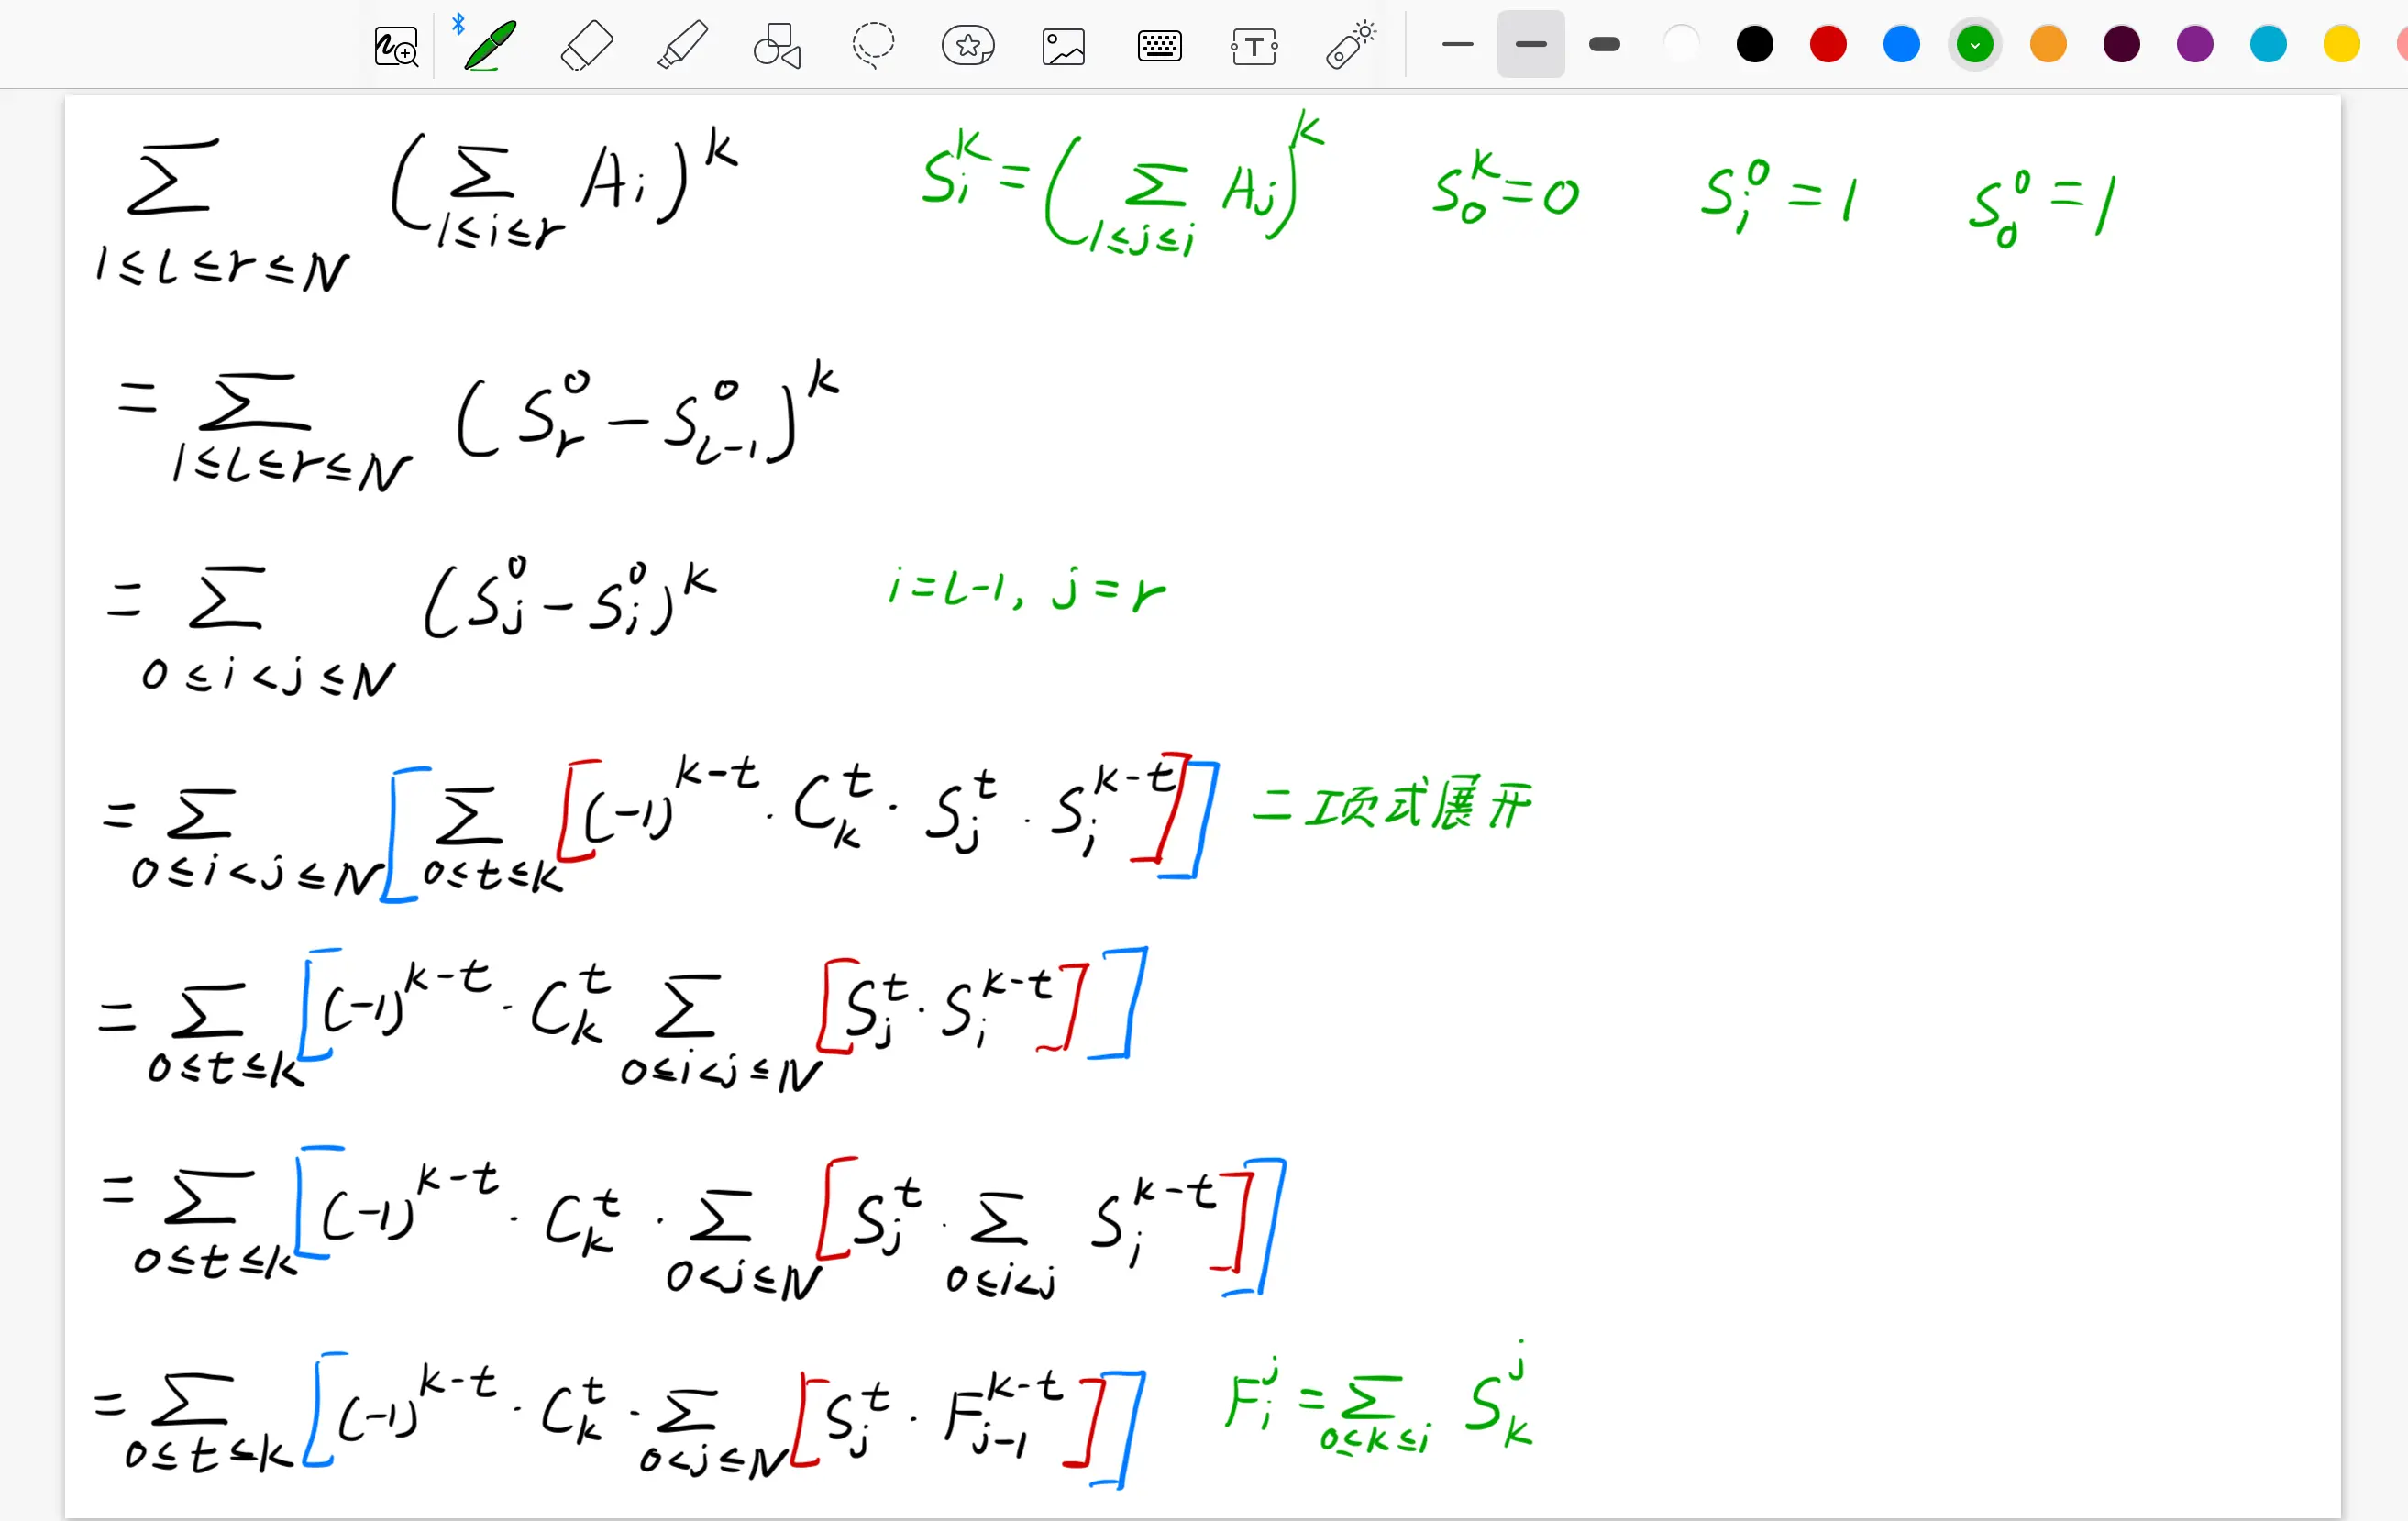 ∑_{1≤l≤r≤N} (∑_{1≤i≤r} A_i)^k    S_i^k = (∑_{1≤j≤i} A_j)^k    S_0^k = 0    S_i^0 = 1    S_0^0 = 1
= ∑_{1≤l≤r≤N} (S_r^0 - S_{l-1}^0)^k
= ∑_{0≤i<j≤N} (S_j^0 - S_i^0)^k    i=l-1, j=r
= ∑_{0≤i<j≤N} [∑_{0≤t≤k} [(-1)^{k-t} · C_k^t · S_j^t · S_i^{k-t}]] 二项式展开
= ∑_{0≤t≤k} [(-1)^{k-t} · C_k^t ∑_{0≤i<j≤N} [S_j^t · S_i^{k-t}]]
= ∑_{0≤t≤k} [(-1)^{k-t} · C_k^t · ∑_{0<j≤N} [S_j^t · ∑_{0≤i<j} S_i^{k-t}]]
= ∑_{0≤t≤k} [(-1)^{k-t} · C_k^t · ∑_{0<j≤N} [S_j^t · F_{j-1}^{k-t}]]    F_i^j = ∑_{0≤k≤i} S_k^j